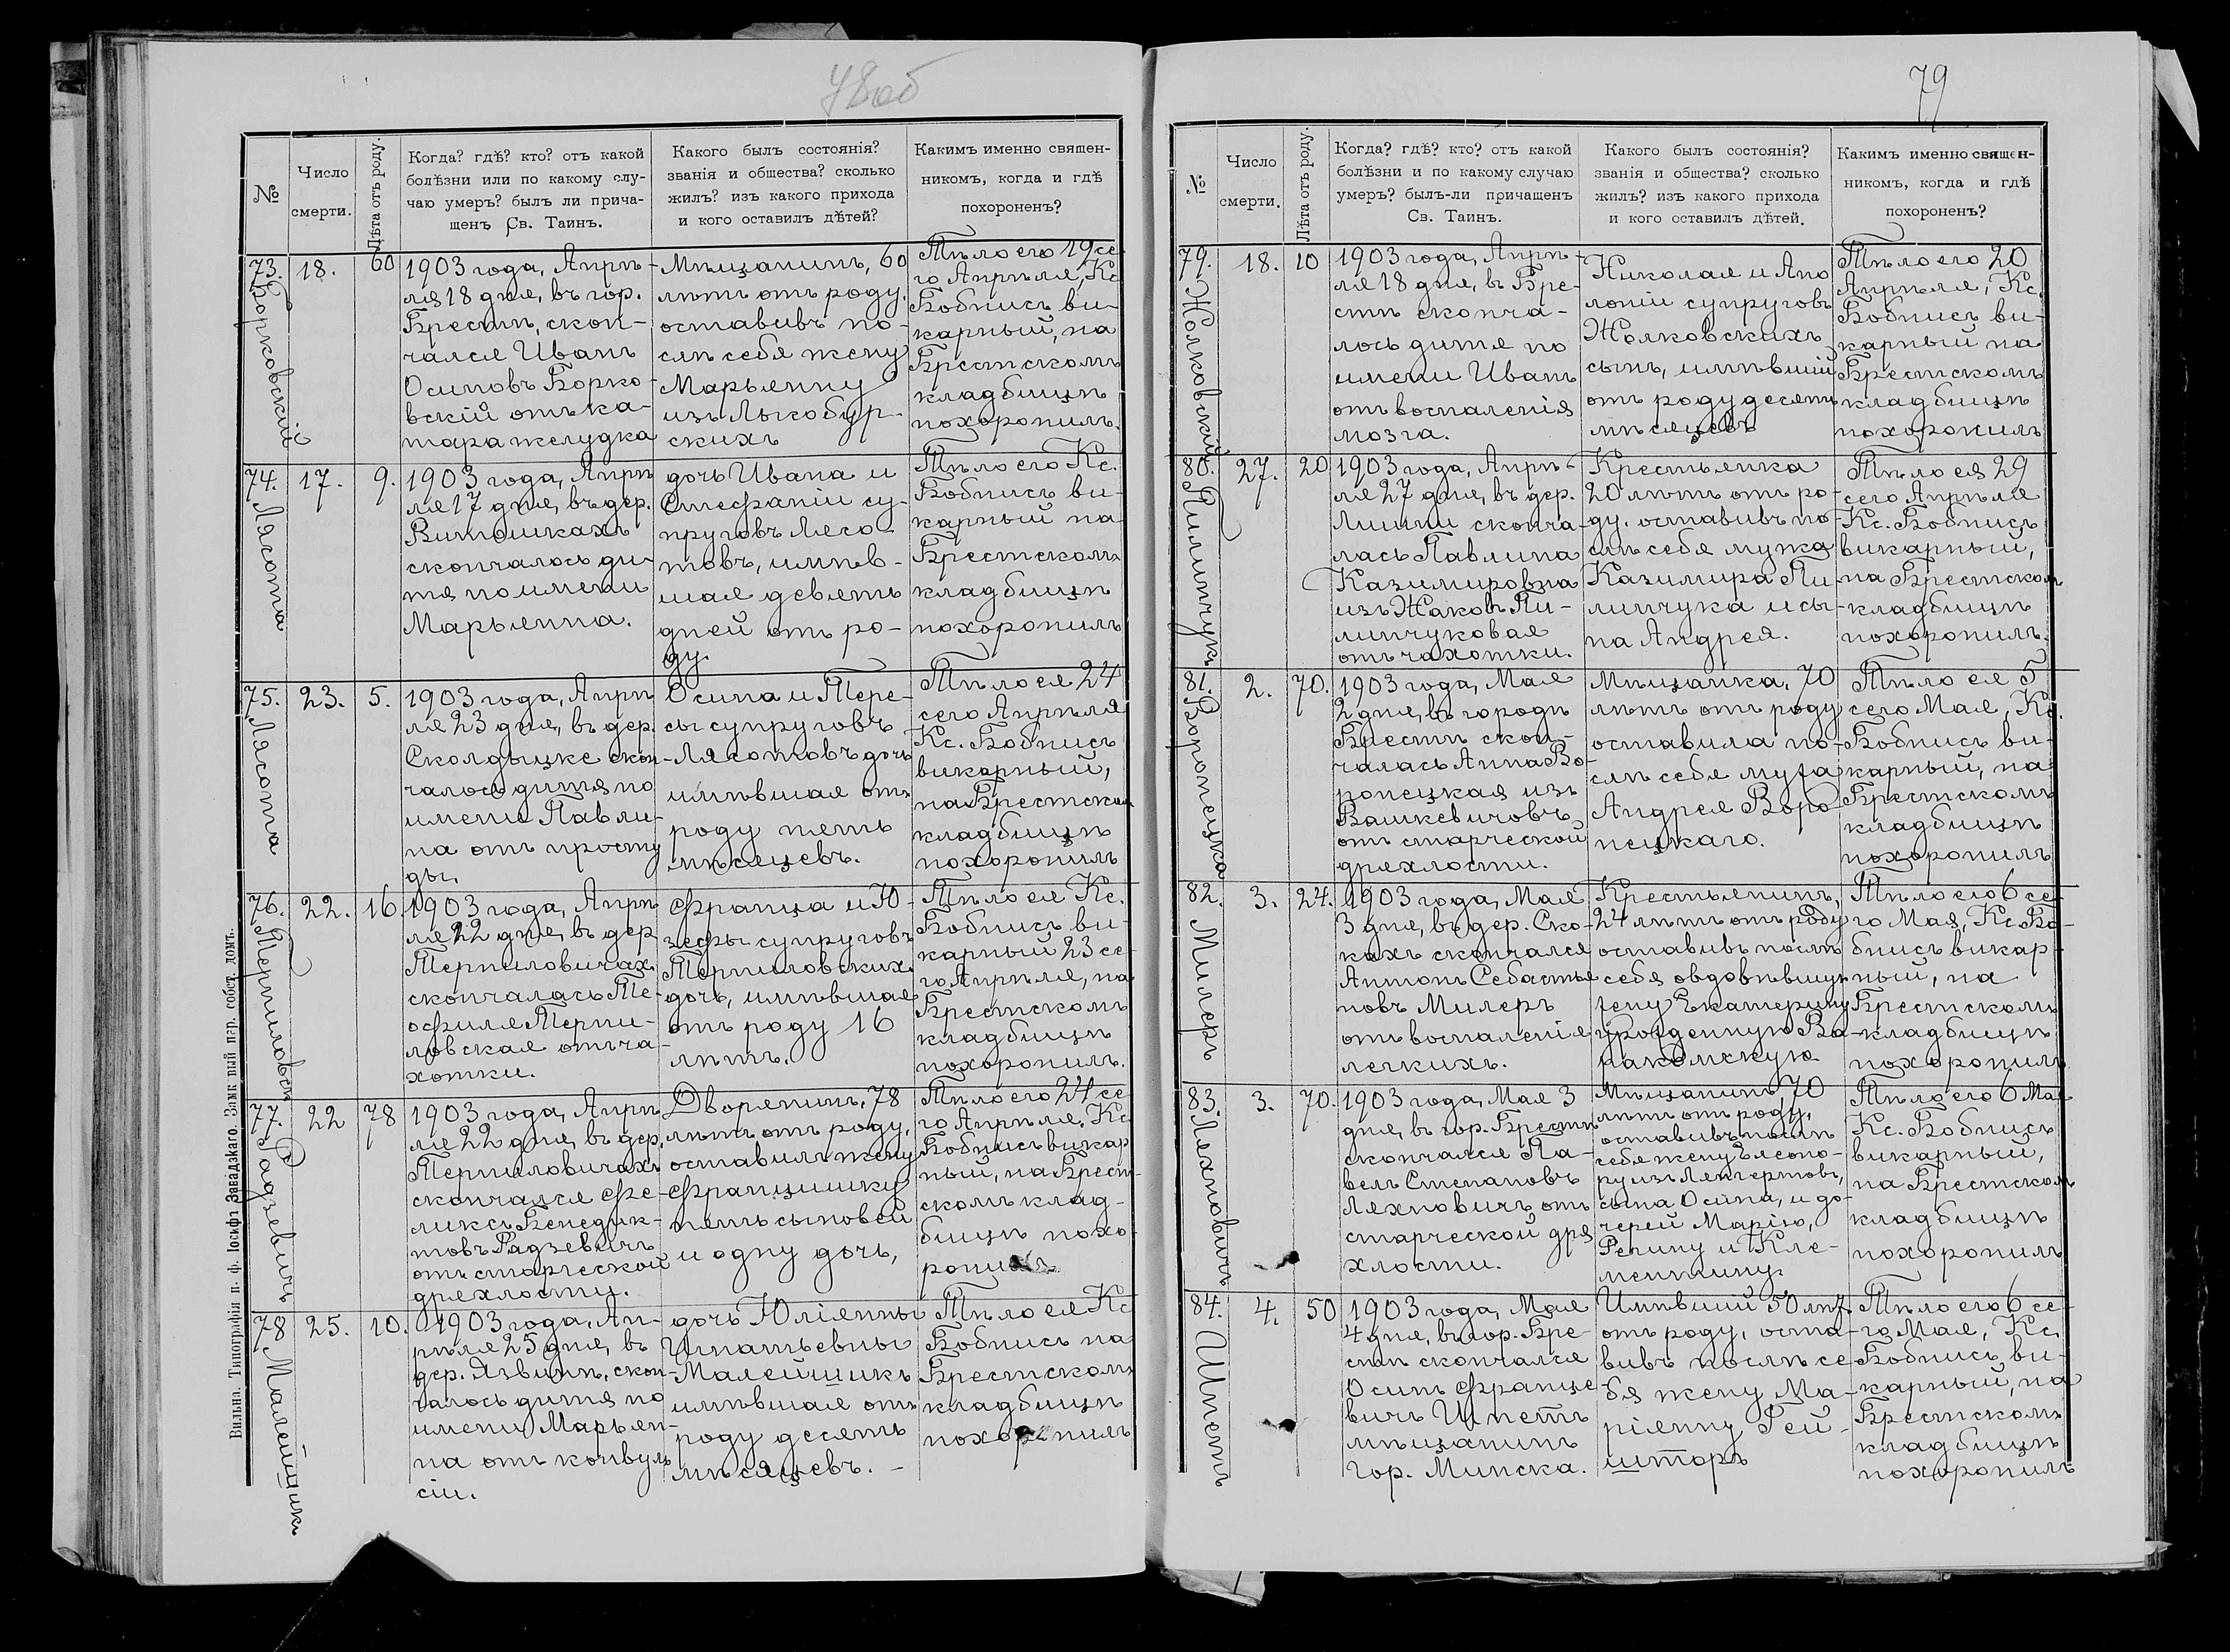 78об
№
Число
смерти.
Лѣта отъ роду.
Когда? гдѣ? кто? отъ какой
болѣзни или по какому слу-
чаю умеръ? былъ ли прича-
щенъ Св. Таинъ.
Какого былъ состоянія?
званія и общества? сколько
жилъ? изъ какого прихода
и кого оставилъ дѣтей?
Какимъ именно священ-
никомъ, когда и гдѣ
похороненъ?
73.
Борковскій
18.
60
1903 года, Апрѣ-
ля 18 дня, въ гор.
Брестѣ, скон-
чался Иванъ
Осиповъ Борко-
вскій отъ ка-
тара желудка
Мѣщанинъ, 60
лѣтъ отъ роду.
оставивъ по-
слѣ себя жену
Марьянну
изъ Лыкобур-
скихъ
Тѣло его 19 се-
го Апрѣля, Кс.
Бобнисъ ви-
карный, на
Брестскомъ
кладбищѣ
похоронилъ.
74.
Лясота
17.
9.
1903 года, Апрѣ
ля 17 дня, въ дер.
Витошкахъ
скончалось ди-
тя по имени
Марьянна.
дочь Ивана и
Стефаніи су-
пруговъ Лясо-
товъ, имѣв-
шая девять
дней отъ ро-
ду.
Тѣло его Кс.
Бобнисъ ви-
карный на
Брестскомъ
кладбищѣ
похоронилъ
75.
Лясота
23.
5.
1903 года, Апрѣ
ля 23 дня, въ дер.
Сколдыцке скон-
чалось дитя по
имени Павли-
на отъ просту
ды.
Осипа и Тере-
сы супруговъ
Лясотовъ дочь
имѣвшая отъ
роду пять
мѣсяцевъ.
Тѣло ея 24
сего Апрѣля
Кс. Бобнисъ
викарный,
на Брестском
кладбищѣ
похоронилъ
76.
Терпиловск
22.
16.
1903 года, Апрѣ
ля 22 дня, въ дер
Терпиловичах
скончалась Те-
офиля Терпи-
ловская отъ ча-
хотки.
Франца и Ю-
зефы супруговъ
Терпиловскихъ
дочь, имѣвшая
отъ роду 16
лѣтъ.
Тѣло ея Кс.
Бобнисъ ви-
карный 23 се-
го Апрѣля, на
Брестскомъ
кладбищѣ
похоронилъ.
77.
Радзевичъ
22
78
1903 года, Апрѣ
ля 22 дня, въ дер.
Терпиловичахъ
скончался Фе-
ликсъ Бенедик-
товъ Радзевичъ
отъ старческой
дряхлости.
Дворянинъ, 78
лѣтъ отъ роду,
оставилъ жену
Францишку
пять сыновей
и одну дочь,
Тѣло его 24 се
го Апрѣля, Кс.
Бобнисъ викар
ный, на Брест-
скомъ клад-
бищѣ похо-
ронилъ
78
Малейщикъ
25.
10.
1903 года, Ап-
рѣля 25 дня, въ
дер. Язвинѣ, скон
чалось дитя по
имени Марьян-
на отъ конвуль
сіи.
дочь Юліянны
Игнатьевны
Малейщикъ
имѣвшая отъ
роду десять
мѣсяцевъ. -
Тѣло ея Кс
Бобнисъ на
Брестскомъ
кладбищѣ
похоронилъ
Вильна. Типографія п. ф. Іосифъ Завадзкаго. Замковый пер. собст. домъ.
79
№
Число
смерти.
Лѣта отъ роду.
Когда? гдѣ? кто? отъ какой
болѣзни и по какому случаю
умеръ? былъ-ли причащенъ
Св. Таинъ.
Какого былъ состоянія?
званія и общества? сколько
жилъ? изъ какого прихода
и кого оставилъ дѣтей.
Какимъ именно священ-
никомъ, когда и гдѣ
похороненъ?
79.
Жолковскій
18.
10
1903 года, Апрѣ-
ля 18 дня, въ Бре-
стѣ сконча-
лось дитя по
имени Иванъ
отъ воспаленія
мозга.
Николая и Апо
лоніи супруговъ
Жолковскихъ
сынъ, имѣвшій
отъ роду десять
мѣсяцевъ
Тѣло его 20
Апрѣля, Кс.
Бобнисъ ви-
карный на
Брестскомъ
кладбищѣ
похоронилъ
80.
Пилипчукъ
27.
20
1903 года, Апрѣ-
ля 27 дня, въ дер.
Лищи сконча-
лась Павлина
Казимировна
изъ Жаковъ Пи-
липчуковая
отъ чахотки.
Крестьянка
20 лѣтъ отъ ро-
ду, оставивъ по-
слѣ себя мужа
Казимира Пи-
липчука и сы-
на Андрея.
Тѣло ея 29
сего Апрѣля
Кс. Бобнисъ
викарный,
на Брестском
кладбищѣ
похоронилъ.
81.
Воронецкая
2.
70.
1903 года, Мая
2 дня, въ городѣ
Брестѣ скон-
чалась Анна Во-
ронецкая изъ
Вашкевичовъ
отъ старческой
дряхлости.
Мѣщанка, 70
лѣтъ отъ роду
оставила по-
слѣ себя мужа
Андрея Воро-
нецкаго.
Тѣло ея 5
сего Мая, Кс.
Бобнисъ ви-
карный, на
Брестскомъ
кладбищѣ
похоронилъ
82.
Милеръ
3.
24.
1903 года, Мая
3 дня, въ дер. Ско-
кахъ скончался
Антонъ Себастья
новъ Милеръ
отъ воспаленія
легкихъ.
Крестьянинъ,
24 лѣтъ отъ роду
оставивъ послѣ
себя овдовѣвшую
жену Екатерину
урожденную Ва-
накомскую
Тѣло его 6 се-
го Мая, Кс. Бо-
бнисъ викар-
ный, на
Брестскомъ
кладбищѣ
похоронилъ
83.
Ляхновичъ
3.
70.
1903 года, Мая 3
дня, въ гор. Брестѣ
скончался Па-
велъ Степановъ
Ляхновичъ отъ
старческой дря
хлости.
Мѣщанинъ, 70
лѣтъ отъ роду,
оставивъ послѣ
себя жену Элеоно-
ру изъ Ленгертовъ,
сына Осипа, и до-
черей Марію,
Регину и Кле-
ментину.
Тѣло его 6 Мая
Кс. Бобнисъ
викарный,
на Брестском
кладбищѣ
похоронилъ
84.
Шпетъ
4.
50
1903 года, Мая
4 дня, въ гор. Бре-
стѣ скончался
Осипъ Францe-
вичъ Шпетъ
мѣщанинъ
гор. Минска.
Имѣвшій 50 лѣт.
отъ роду, оста-
вивъ послѣ се-
бя жену Ма-
ріянну Рей-
шторъ
Тѣло его 6 се-
го Мая, Кс.
Бобнисъ, ви-
карный, на
Брестскомъ
кладбищѣ
похоронилъ